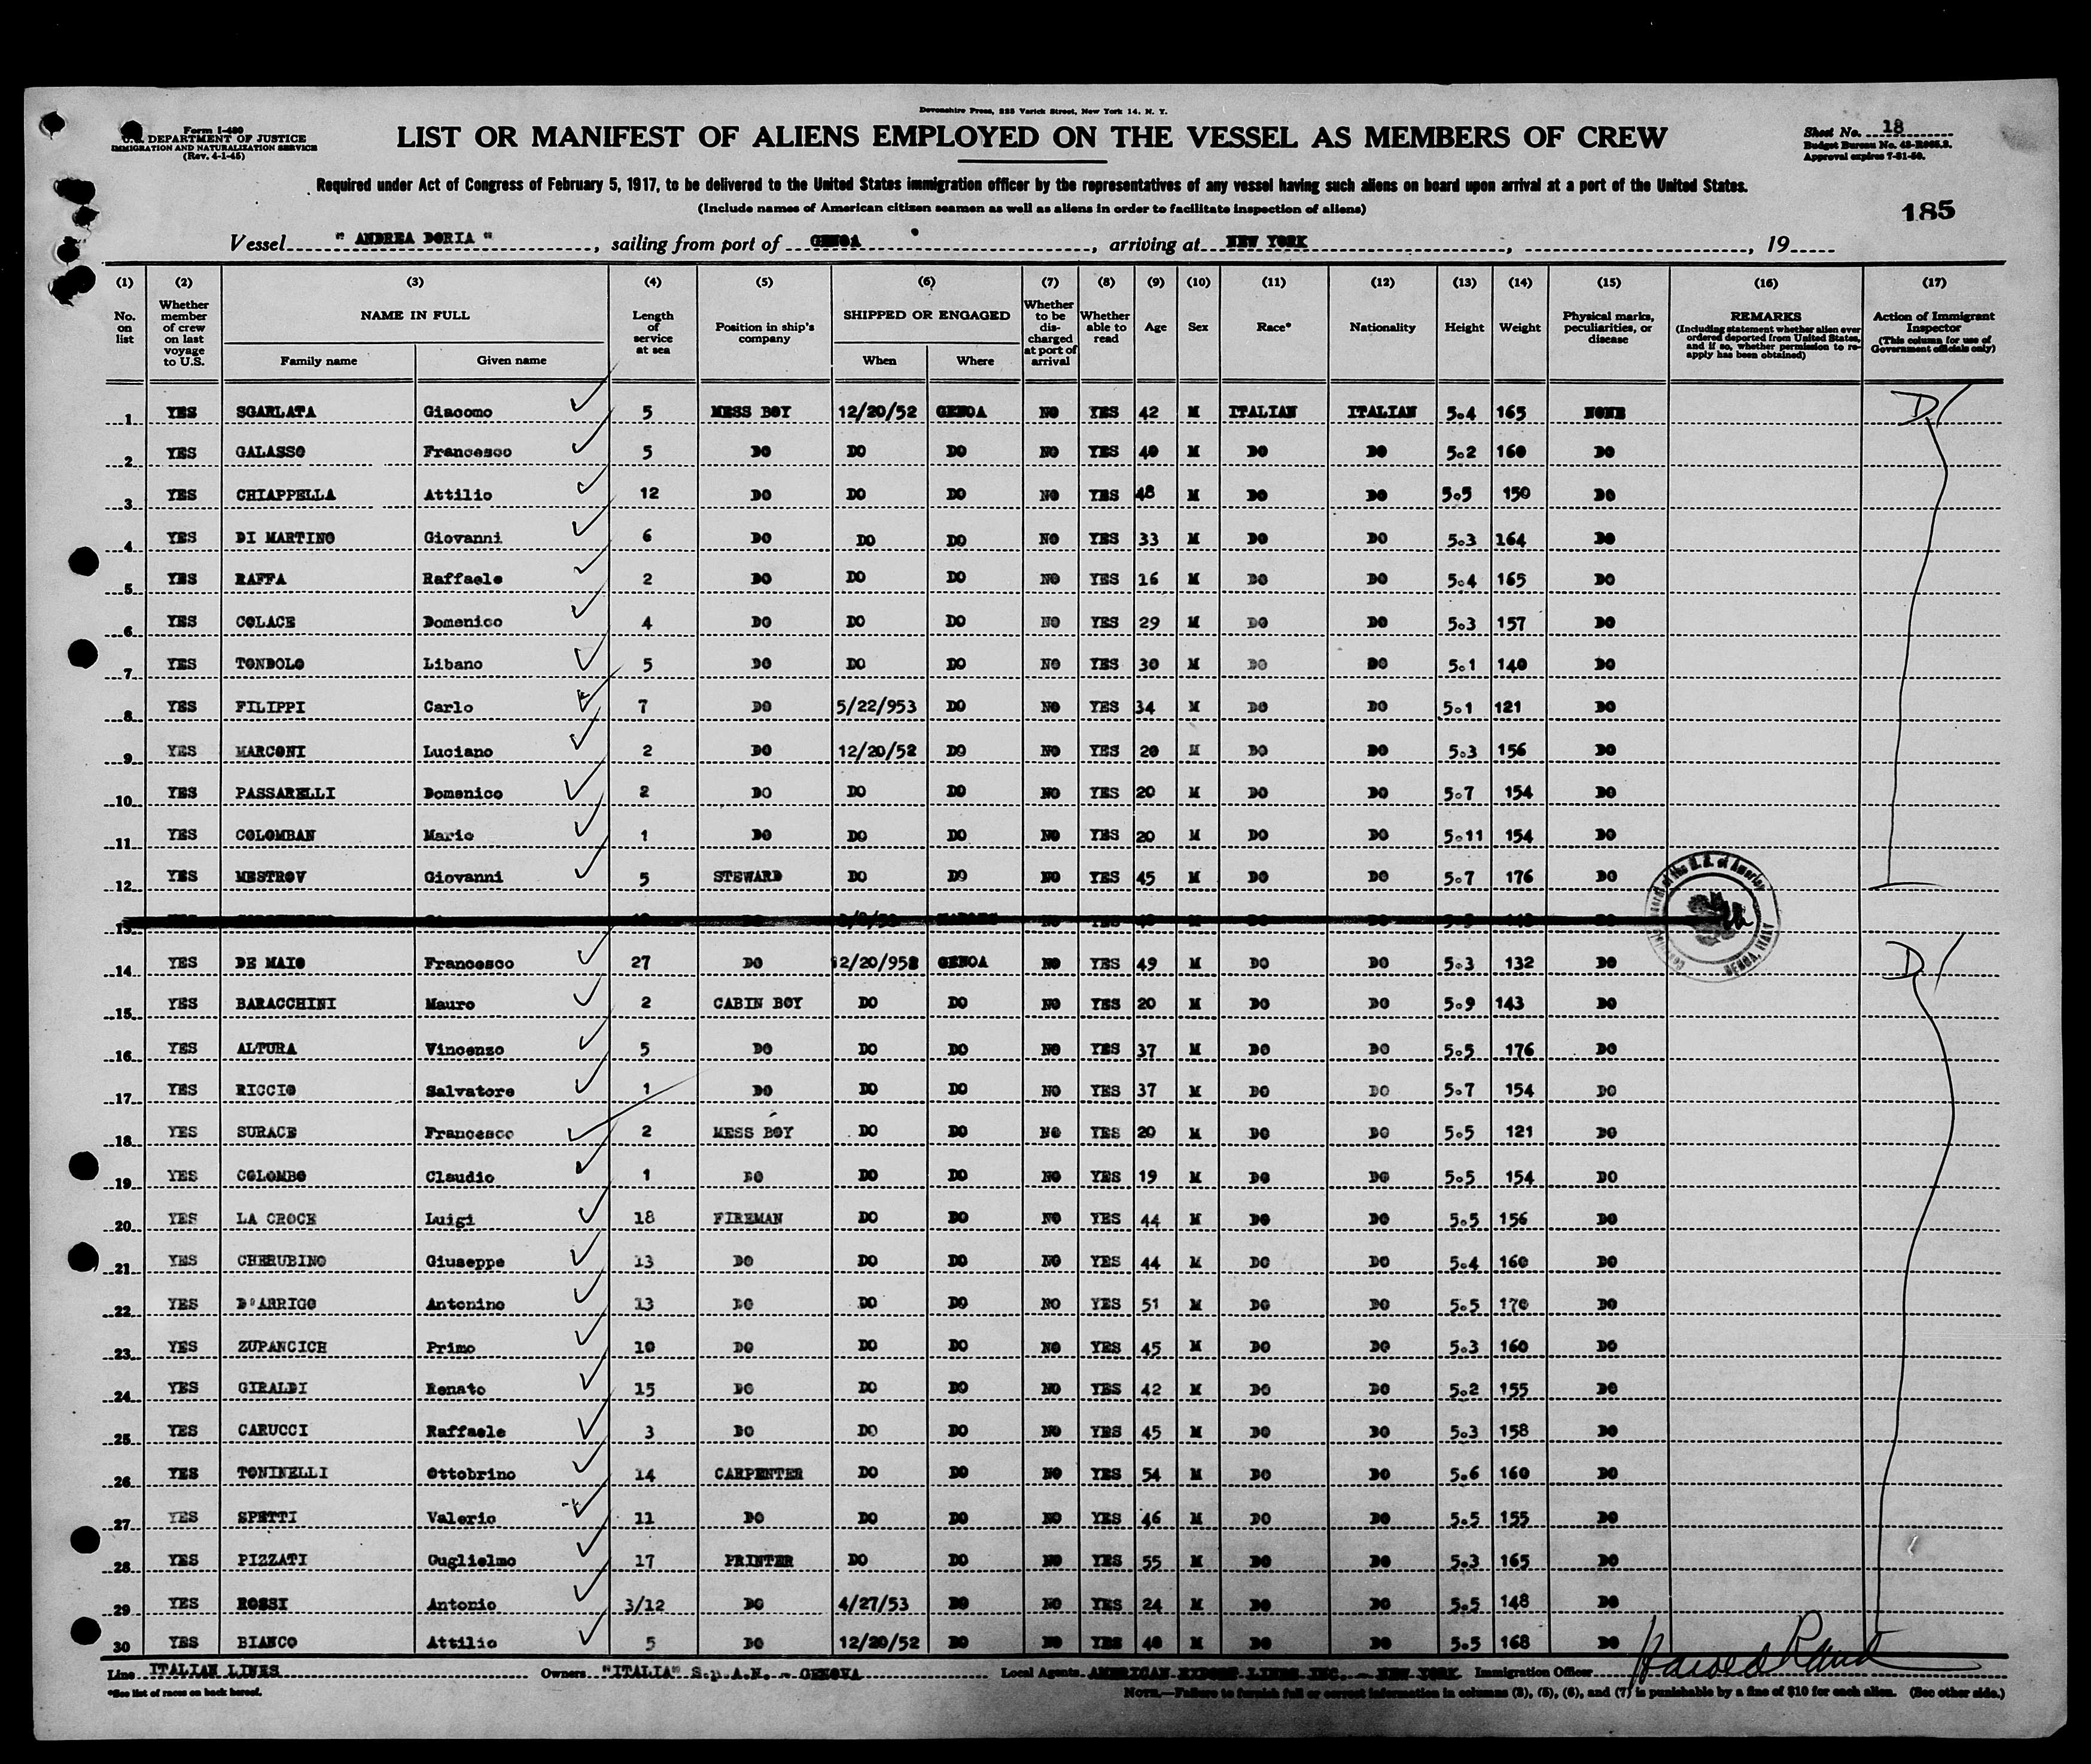 Devonshire Press, 225 Varick Street, New York 14, N. Y.
Form I-480
U.S. DEPARTMENT OF JUSTICE
IMMIGRATION AND NATURALIZATION SERVICE
(Rev. 4-1-45)
LIST OR MANIFEST OF ALIENS EMPLOYED ON THE VESSEL AS MEMBERS OF CREW
Sheet No. 18
Budget Bureau No. 43-R065.3.
Approval expires 7-31-50.
Required under Act of Congress of February 5, 1917, to be delivered to the United States immigration officer by the representatives of any vessel having such aliens on board upon arrival at a port of the United States.
(Include names of American citizen seamen as well as aliens in order to facilitate inspection of aliens)
185
Vessel " ANDREA DORIA ", sailing from port of GENOA, arriving at NEW YORK, , 19
(1) (2) (3) (4) (5) (6) (7) (8) (9) (10) (11) (12) (13) (14) (15) (16) (17)
No. on list
Whether member of crew on last voyage to U.S.
NAME IN FULL
Family name Given name
Length of service at sea
Position in ship's company
SHIPPED OR ENGAGED
When Where
Whether to be discharged at port of arrival
Whether able to read
Age Sex Race* Nationality Height Weight
Physical marks, peculiarities, or disease
REMARKS
(Including statement whether alien ever ordered deported from United States, and if so, whether permission to re-apply has been obtained)
Action of Immigrant Inspector
(This column for use of Government officials only)
1 YES SGARLATA Giacomo 5 MESS BOY 12/20/52 GENOA NO YES 42 M ITALIAN ITALIAN 5.4 165 NONE
2 YES GALASSO Francesco 5 DO DO DO NO YES 40 M DO DO 5.2 160 DO
3 YES CHIAPPELLA Attilio 12 DO DO DO NO YES 48 M DO DO 5.5 150 DO
4 YES DI MARTINO Giovanni 6 DO DO DO NO YES 33 M DO DO 5.3 164 DO
5 YES RAFFA Raffaele 2 DO DO DO NO YES 16 M DO DO 5.4 165 DO
6 YES COLACE Domenico 4 DO DO DO NO YES 29 M DO DO 5.3 157 DO
7 YES TONDOLO Libano 5 DO DO DO NO YES 30 M DO DO 5.1 140 DO
8 YES FILIPPI Carlo 7 DO 5/22/953 DO NO YES 34 M DO DO 5.1 121 DO
9 YES MARCONI Luciano 2 DO 12/20/52 DO NO YES 20 M DO DO 5.3 156 DO
10 YES PASSARELLI Domenico 2 DO DO DO NO YES 20 M DO DO 5.7 154 DO
11 YES COLOMBAN Mario 1 DO DO DO NO YES 20 M DO DO 5.11 154 DO
12 YES MESTROV Giovanni 5 STEWARD DO DO NO YES 45 M DO DO 5.7 176 DO
13
GENOA, ITALY
14 YES DE MAIO Francesco 27 DO 12/20/952 GENOA NO YES 49 M DO DO 5.3 132 DO
15 YES BARACCHINI Mauro 2 CABIN BOY DO DO NO YES 20 M DO DO 5.9 143 DO
16 YES ALTURA Vincenzo 5 DO DO DO NO YES 37 M DO DO 5.5 176 DO
17 YES RICCIO Salvatore 1 DO DO DO NO YES 37 M DO DO 5.7 154 DO
18 YES SURACE Francesco 2 MESS BOY DO DO NO YES 20 M DO DO 5.5 121 DO
19 YES COLOMBO Claudio 1 DO DO DO NO YES 19 M DO DO 5.5 154 DO
20 YES LA CROCE Luigi 18 FIREMAN DO DO NO YES 44 M DO DO 5.5 156 DO
21 YES CHERUBINO Giuseppe 13 DO DO DO NO YES 44 M DO DO 5.4 160 DO
22 YES D'ARRIGO Antonino 13 DO DO DO NO YES 51 M DO DO 5.5 170 DO
23 YES ZUPANCICH Primo 10 DO DO DO NO YES 45 M DO DO 5.3 160 DO
24 YES GIRALDI Renato 15 DO DO DO NO YES 42 M DO DO 5.2 155 DO
25 YES CARUCCI Raffaele 3 DO DO DO NO YES 45 M DO DO 5.3 158 DO
26 YES TONINELLI Ottobrino 14 CARPENTER DO DO NO YES 54 M DO DO 5.6 160 DO
27 YES SPETTI Valerio 11 DO DO DO NO YES 46 M DO DO 5.5 155 DO
28 YES PIZZATI Guglielmo 17 PRINTER DO DO NO YES 55 M DO DO 5.3 165 DO
29 YES ROSSI Antonio 3/12 DO 4/27/53 DO NO YES 24 M DO DO 5.5 148 DO
30 YES BIANCO Attilio 5 DO 12/20/52 DO NO YES 40 M DO DO 5.5 168 DO
Line ITALIAN LINES Owners "ITALIA" S.p.A.N. - GENOVA Local Agents AMERICAN EXPORT LINES INC. - NEW YORK Immigration Officer Harold Rand
*See list of races on back hereof.
NOTE.—Failure to furnish full or correct information in columns (3), (5), (6), and (7) is punishable by a fine of $10 for each alien. (See other side.)